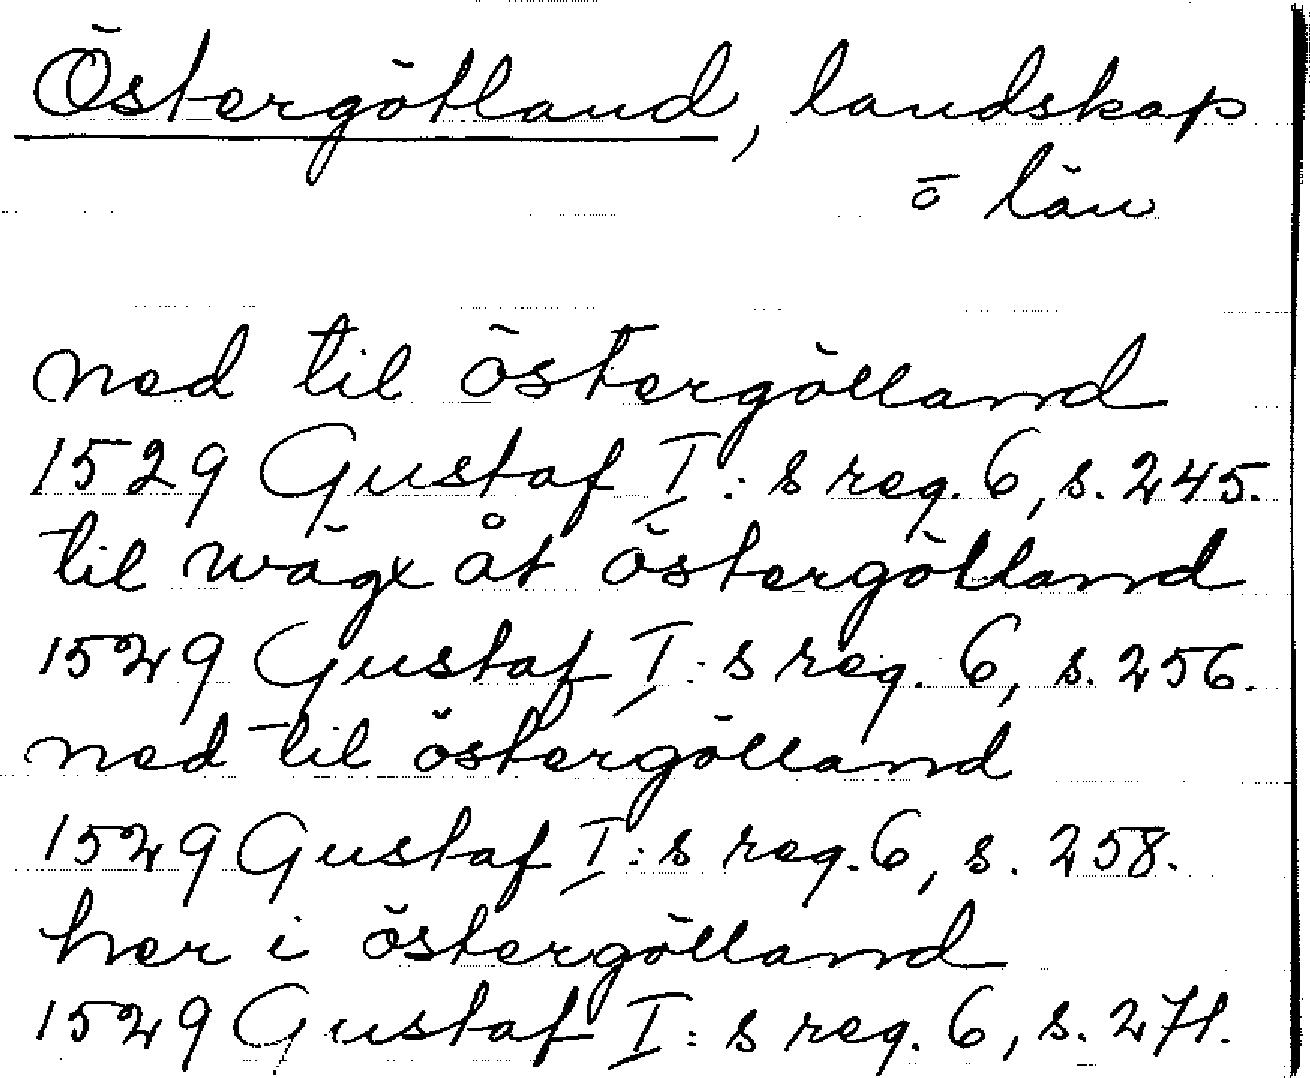 Östergötland, landskap
o län
ned til östergölland
1529 Gustaf I:s reg. 6, s. 245.
til wägx åt östergötland
1529 Gustaf I:s reg. 6, s. 256.
ned til östergölland
1529 Gustaf I:s reg. 6, s. 258.
her i östergölland
1529 Gustaf I:s reg. 6, s. 271.